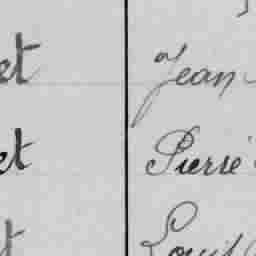 et Jean
et Pierre
t Louis